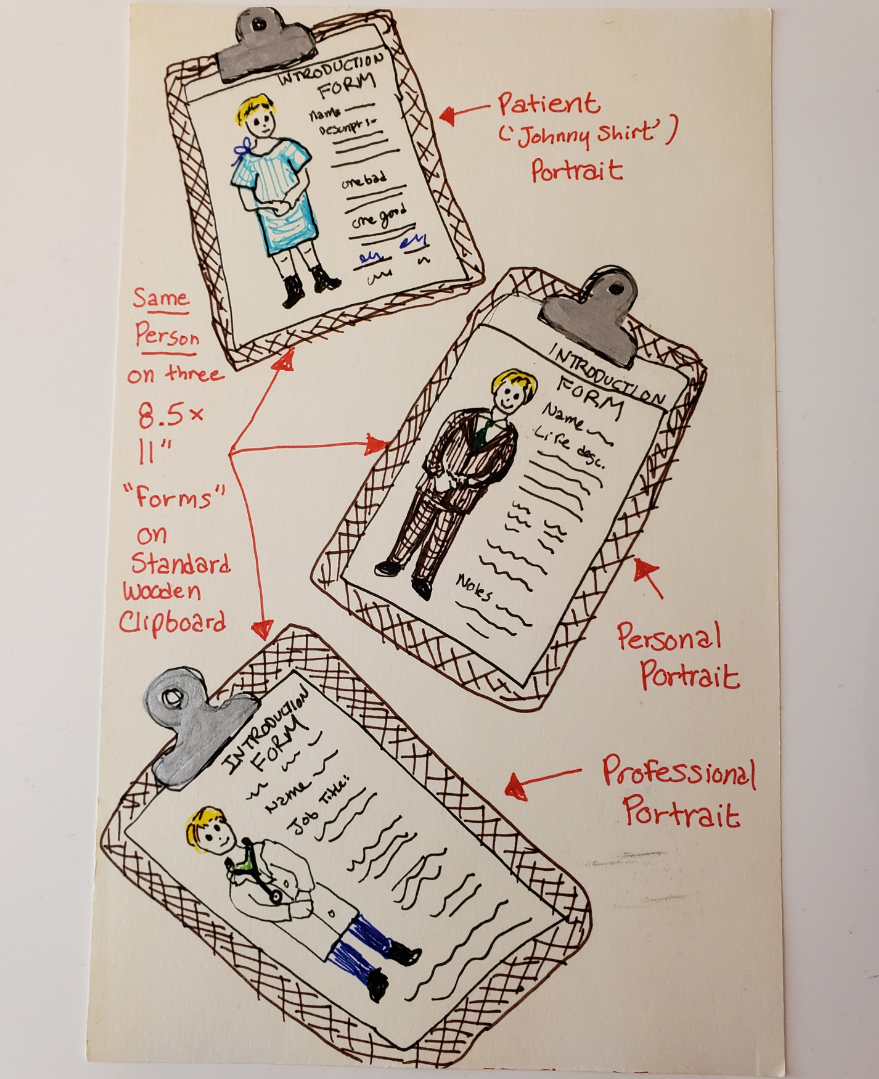 INTRODUCTION
FORM
Name
Descript
one bad
one good
Patient
("Johnny Shirt")
Portrait
Same
Person
on three
8.5x
11"
"Forms"
on
Standard
Wooden
Clipboard
INTRODUCTION
FORM
Name
Life desc.
Notes
Personal
Portrait
INTRODUCTION
FORM
Name
Job Title:
Professional
Portrait